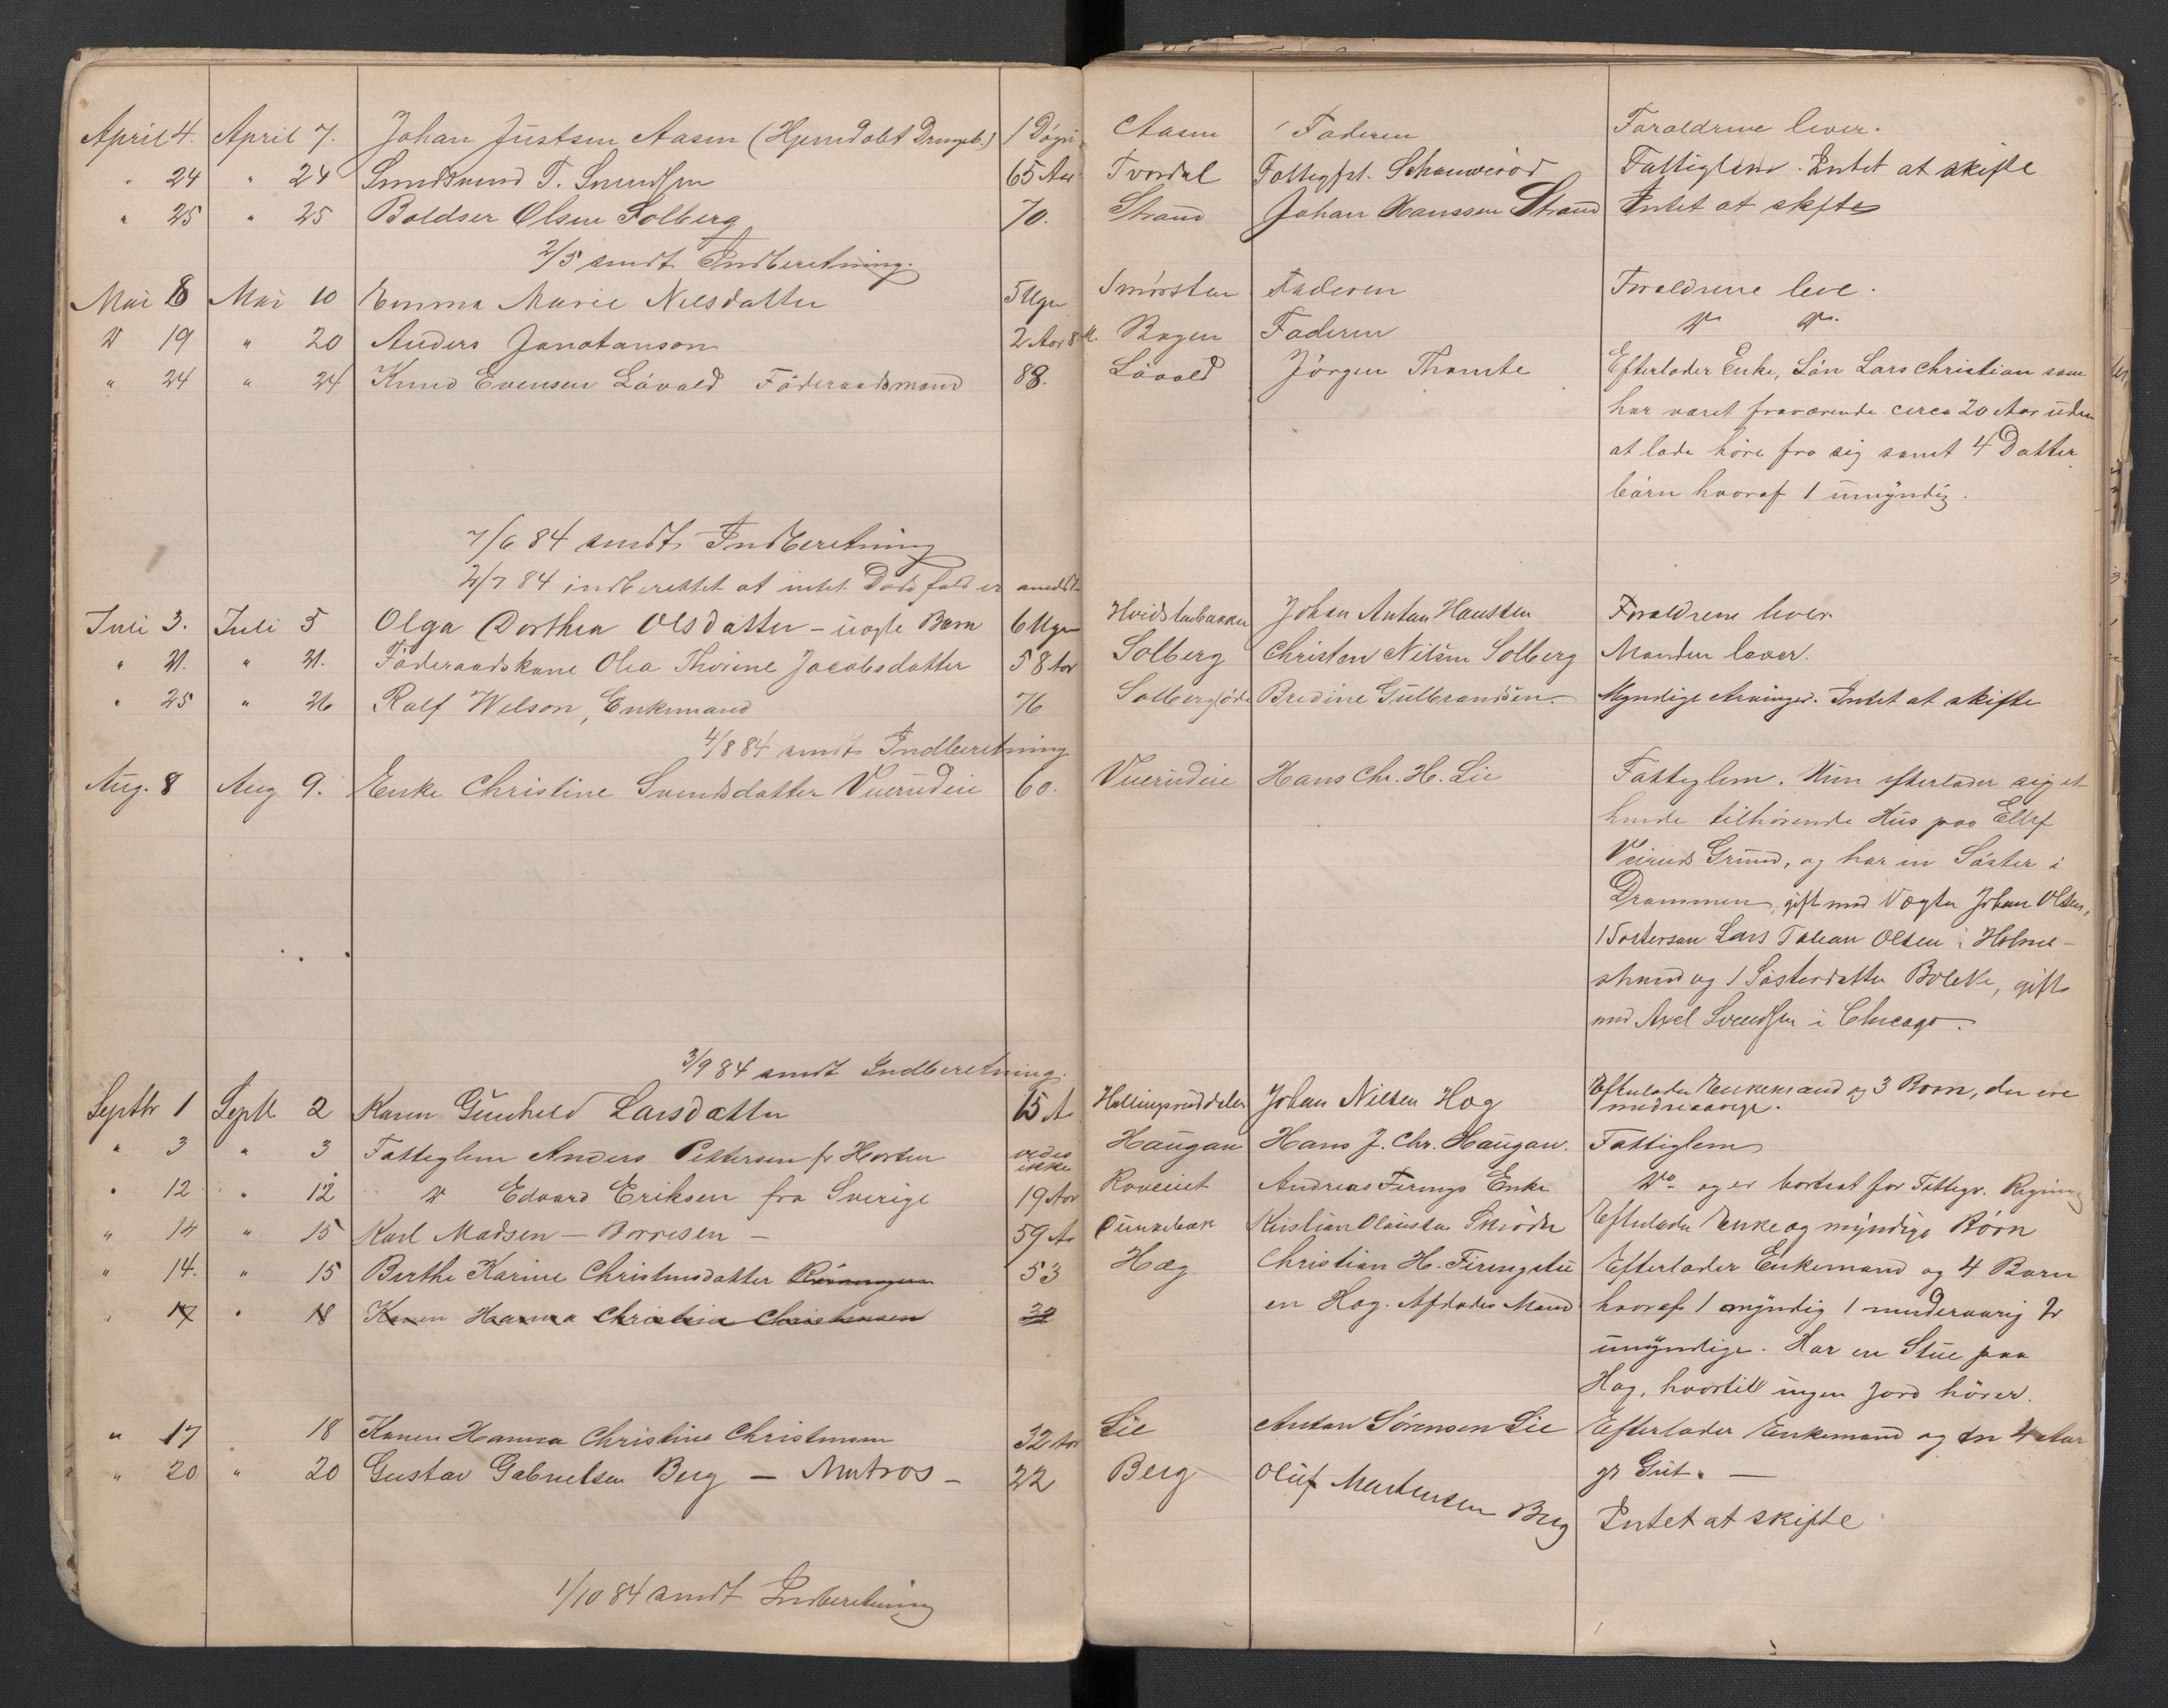 April 4. April 7. Johan Justsen Aasen (Hjemdøbt Drengeb.) 1 Døgn Aasen Faderen Forældrene lever.
" 24 " 24 T. 65 Aar Tvordal Fattigfst. Fattiglem. Intet at skifte
" 25 " 25 Boldser Olsen Solberg 70. Strand Johan Hanssen Strand Intet at skifte
2/5 sendt Indberetning.
Mai 8 Mai 10 Emma Marie Nilsdatter 5 Uger Smørsten Faderen Forældrene leve.
" 19 " 20 Anders Jonatanson 2 Aar 8 M. Bogen Faderen Do Do.
" 24 " 24 Knud Evensen Løvald Føderaadsmand 88. Løvald Jørgen Thomte Efterlader Enke, Søn Lars Christian som
har været fraværende circa 20 Aar uden
at lade høre fra sig samt 4 Datter
børn hvoraf 1 umyndig.
7/6 84 sendt Indberetning
2/7 84 indberettet at intet Dødsfald er anmeldt
Juli 3. Juli 5 Olga Dorthea Olsdatter - uægte Barn 6 Uger Hvidstenbakken Johan Anton Hansten Forældrene lever
" 21. " 21. Føderaadskone Olea Thorine Jacobsdatter 58 Aar Solberg Christen Nilsen Solberg Manden lever.
" 25 " 26 Rolf Wilson, Enkemand 76 Solbergføde Bredine Gulbrandsen. Myndige Arvinger. Intet at skifte
4/8 84 sendt Indberetning
Aug. 8 Aug 9. Enke Christine Svendsdatter Vuerudeie 60. Vuerudeie Hans Chr. H. Lie Fattiglem. Hun efterlader sig et
hende tilhørende Hus paa Ellef
Veiruds Grund, og har en Søster i
Drammen, gift med Vægter Johan Olsen,
1 Søstersøn Lars Johan Olsen i Holme-
strand og 1 Søsterdatter Bolette, gift
med Axel Svendsen i Chicago.
3/9 84 sendt Indberetning.
Septbr 1 Septb 2 Karen Gunhild Larsdatter 15 A Hallingsruddalen Johan Nilsen Hog Efterlader Enkemand og 3 Børn, der ere
mindreaarige.
" 3 " 3 Fattiglem Anders Pettersen fr Horten vides
ikke Haugan Hans J. Chr. Haugan. Fattiglem
" 12 " 12 Do Edvard Eriksen fra Sverige 19 Aar Roveiet Andreas Firings Enke Do og er bortsat for Fattigv. Regning
" 14 " 15 Karl Madsen - Borresen - 59 A Kristian Olaussen Efterlader Enke og myndige Børn
" 14. " 15 Berthe Karine Christensdatter 53 Hog Christian H. Firingstu Efterlader Enkemand og 4 Børn
" 17 " 18 Karen Hanna Christine Christensen 32 en Hog. Afdødes Mand hvoraf 1 myndig 1 mindreaarig 2
umyndige. Har en Stue paa
Hog, hvortil ingen Jord hører.
" 17 18 Karen Hanna Christine Christensen 32 Aar Lie Anton Sørensen Lie Efterlader Enkemand og en 4 Aar
gr Gut. -
" 20 " 20 Gustav Gabrielsen Berg - Matros - 22 Berg Oluf Mortensen Berg Intet at skifte
1/10 84 sendt Indberetning